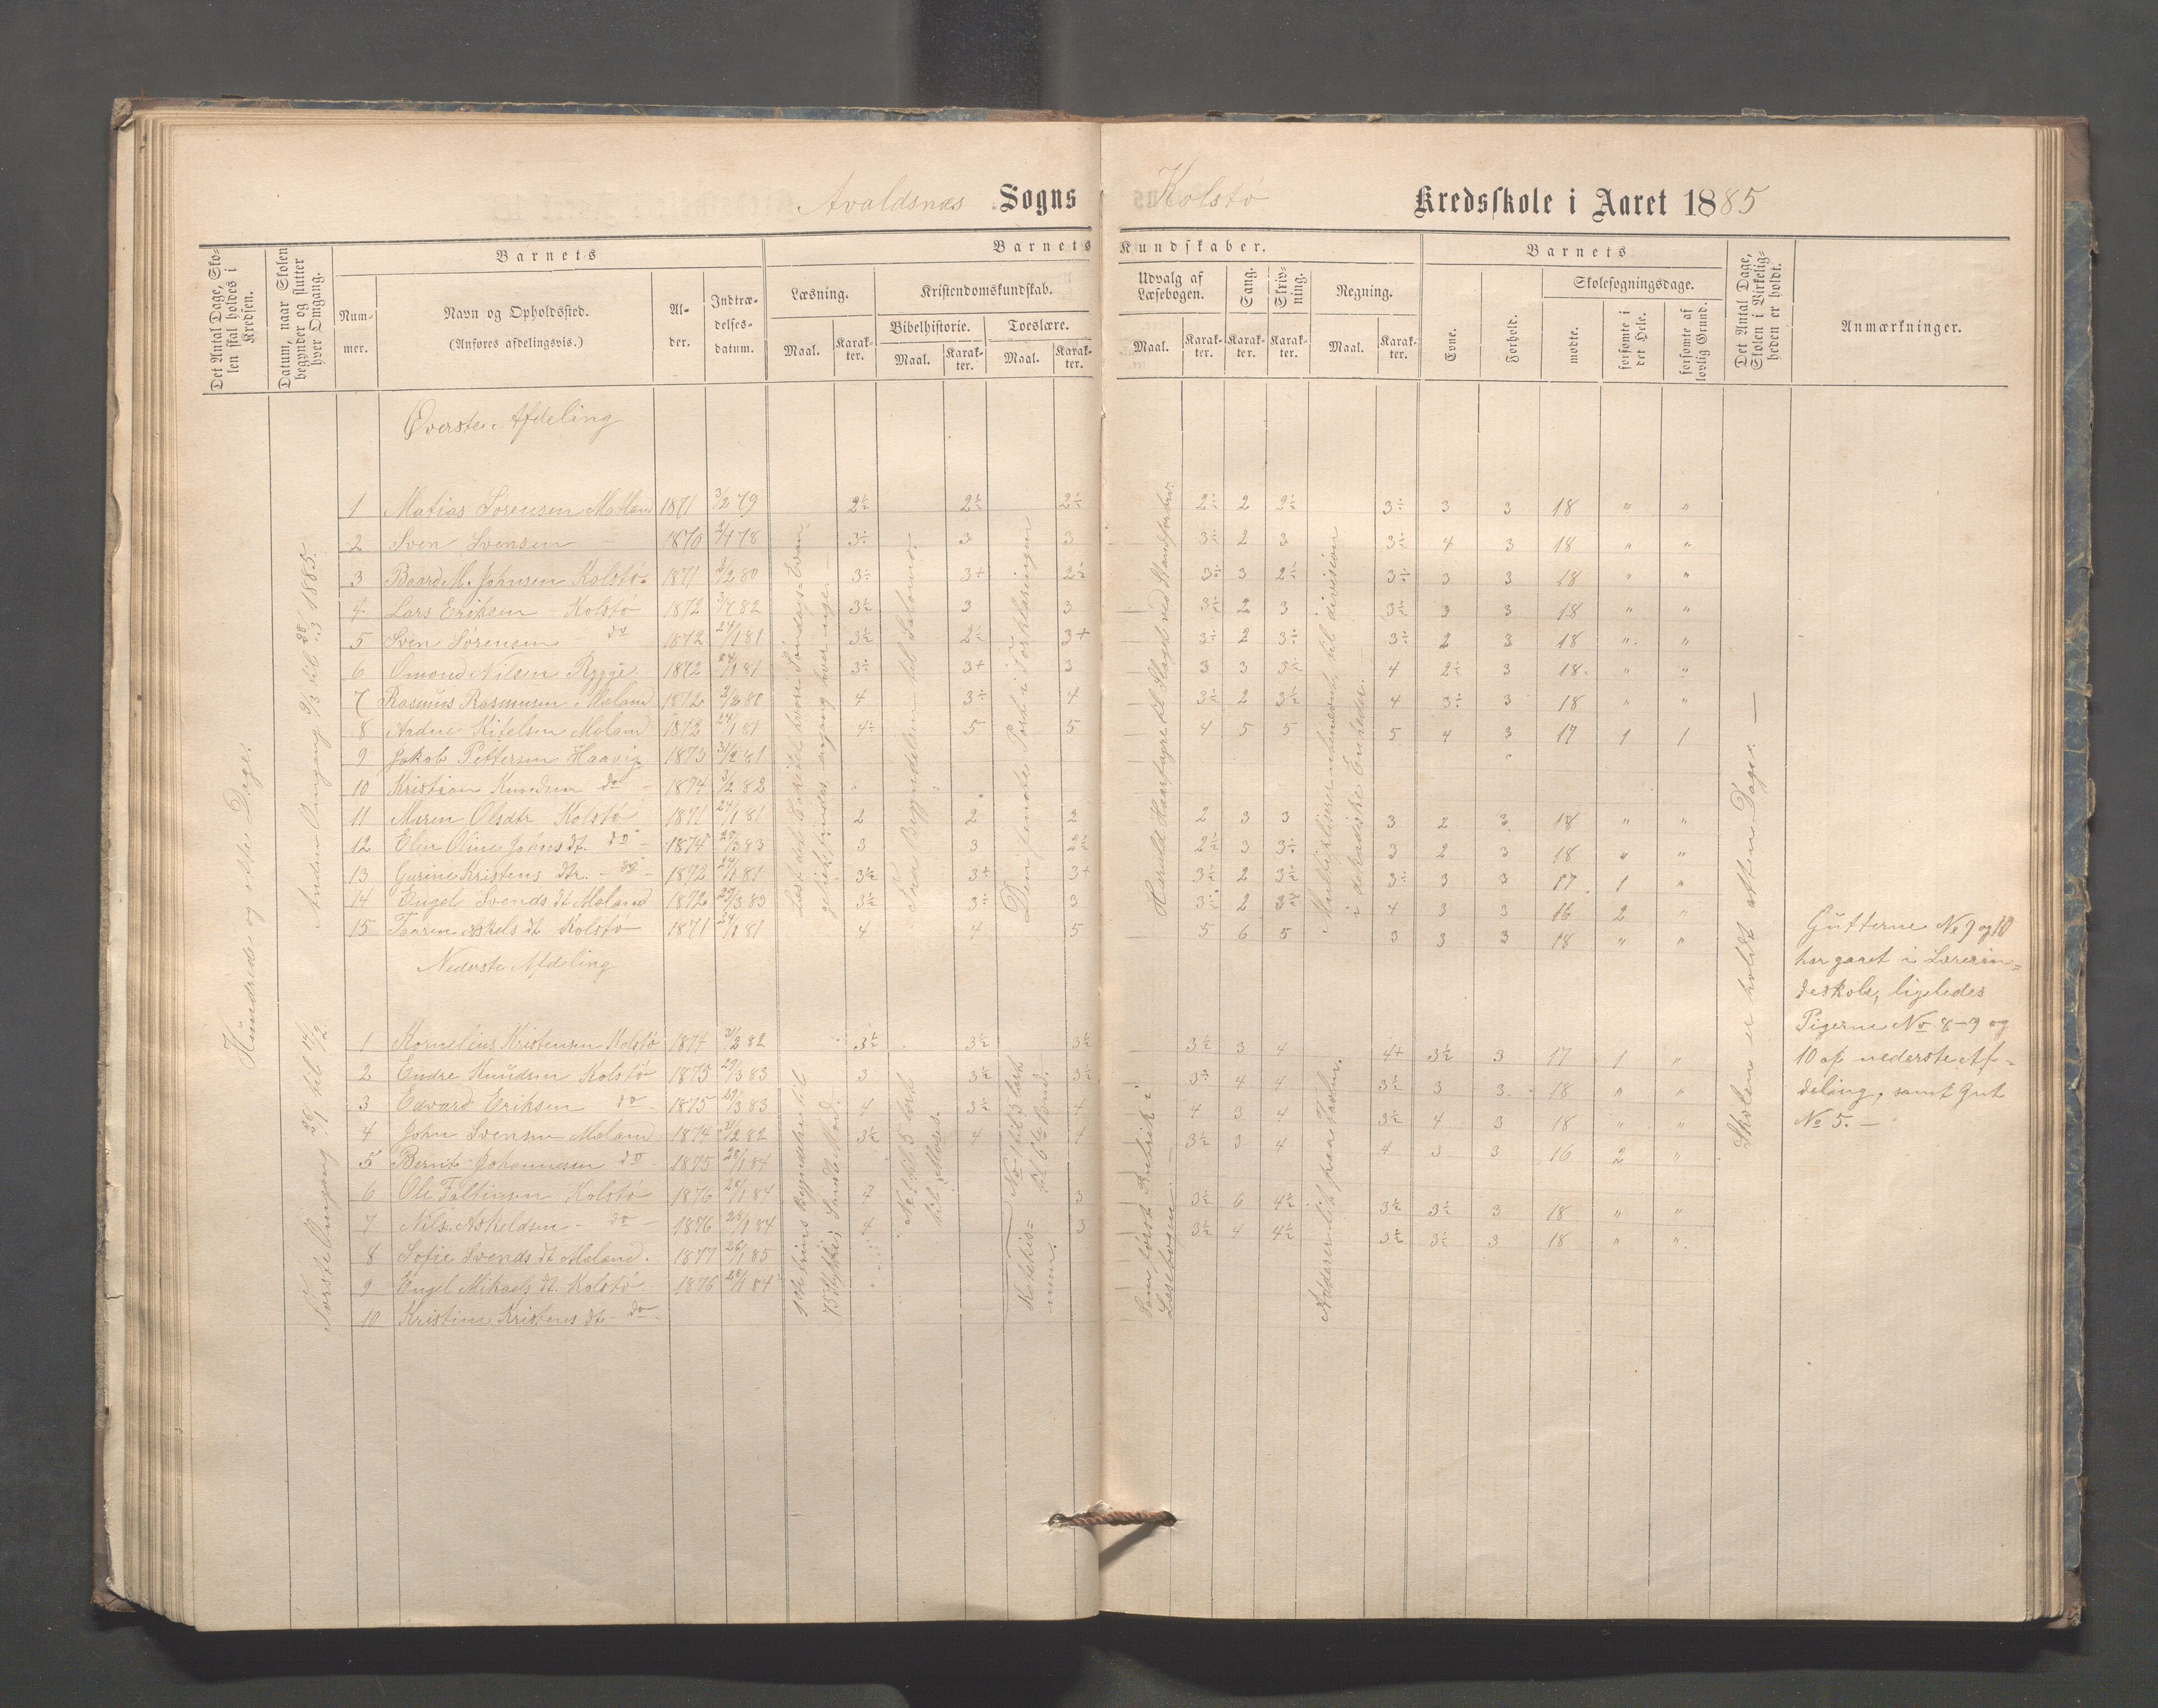 Avaldsnæs Sogns Kolstø Kredsskole i Aaret 1885
Det Antal Dage, Skolen skal holdes i Kredsen.
Datum, naar Skolen begynder og slutter hver Omgang.
Barnets
Nummer.
Navn og Opholdssted.
(Anføres afdelingsvis.)
Alder.
Indtrædelsesdatum.
Barnets Kundskaber.
Læsning.
Maal. Karakter.
Kristendomskundskab.
Bibelhistorie. Troeslære.
Maal. Karakter. Maal. Karakter.
Udvalg af Læsebogen.
Maal. Karakter.
Sang. Karakter.
Skrivning. Karakter.
Regning.
Maal. Karakter.
Barnets
Evne.
Forhold.
Skolesøgningsdage.
mødte.
forsømte i det Hele.
forsømte af lovlig Grund.
Det Antal Dage, Skolen i Virkeligheden er holdt.
Anmærkninger.
Hundrede og otte Dage.
Anden Omgang 9/3 til 28/3 1885.
Første Omgang 26/1 til 14/2.
Øverste Afdeling
1 Matias Sørensen Matland 1871 3/2 79 2½ 2½ 2½ 2½ 2 2½ 3÷ 3 3 18 " "
2 Sven Svensen - 1870 2/4 78 3÷ 3 3 3÷ 2 3 3½ 4 3 18 " "
3 Baard M. Johnsen Kolstø 1871 3/2 80 3÷ 3+ 2½ 3÷ 3 2½ 3÷ 3 3 18 " "
4 Lars Eriksen Kolstø 1872 82 3½ 3 3 3½ 2 3 3½ 3 3 18 " "
5 Sven Sørensen do 1872 24/1 81 3½ 2½ 3+ 3÷ 2 3÷ 3÷ 2 3 18 " "
6 Omond Nilsen Rygge 1872 24/1 81 3÷ 3+ 3 3 3 3½ 4 2½ 3 18 " "
7 Rasmus Rasmussen Mæland 1872 3/2 80 4 3÷ 4 3½ 2 3½ 4 3÷ 3 18 " "
8 Aadne Kitelsen Mæland 1872 24/1 81 4÷ 5 5 4 5 5 5 4 3 17 1 1
9 Jakob Pettersen Haavig 1873 31/2 81
10 Kristian Knudsen do - 1874 3/2 82
11 Maren Olsdtr Kolstø 1871 24/1 81 2 2 2 2 3 3 3 2 3 18 " "
12 Elen Oline Johns dt. do - 1874 29/3 83 3 3 2½ 2½ 3 3÷ 3 2 3 18 " "
13 Gurine Kristens dtr. - do - 1872 24/1 81 3½ 3+ 3+ 3½ 2 3½ 3÷ 3 3 17 1 "
14 Engel Svends dt Mæland 1872 29/3 83 3½ 3÷ 3 3÷ 2 3½ 4 3 3 16 2 "
15 Taaren Askels dt Kolstø 1871 24/1 81 4 4 5 5 6 5 3 3 3 18 " "
Nederste Afdeling
1 Kornelius Kristensen Kolstø 1874 3/2 82 3½ 3½ 3½ 3½ 3 4 4+ 3½ 3 17 1 "
2 Endre Knudsen Kolstø 1873 29/3 83 3 3½ 3½ 3÷ 4 4 3½ 3 3 18 " "
3 Edvard Eriksen do 1875 29/3 83 4 3½ 4 4 3 4 3½ 4 3 18 " "
4 John Svensen Mæland 1874 3/2 82 3½ 4 4 3½ 3 4 4 3 3 16 2 "
5 Bernt Johannesen do 1875 28/1 84
6 Ole Faltinsen Kolstø 1876 28/1 84 4 3 3½ 6 4½ 3½ 3½ 3 18 " "
7 Nils Askeldsen - do - 1876 28/1 84 4 3 3½ 4 4½ 3½ 3½ 3 18 " "
8 Sofie Svends dt Mæland. 1877 26/1 85
9 Engel Mikaels dt. Kolstø 1876 28/1 84
10 Kristine Kristens dt - do -
Fra Begyndelsen til Salomo.
Den femte Part i Forklaringen
Harald Haarfagre til Slaget ved
Multiplikation til division i dekadiske Enheder.
Katekismum.
Læsebogen.
Skolen er holdt atten Dage. —
Gutterne No 9 og 10
har gaaet i Lærerin=
deskole, ligeledes
Pigerne No 8-9 og
10 af nederste Af-
deling, samt Gut
No 5. —